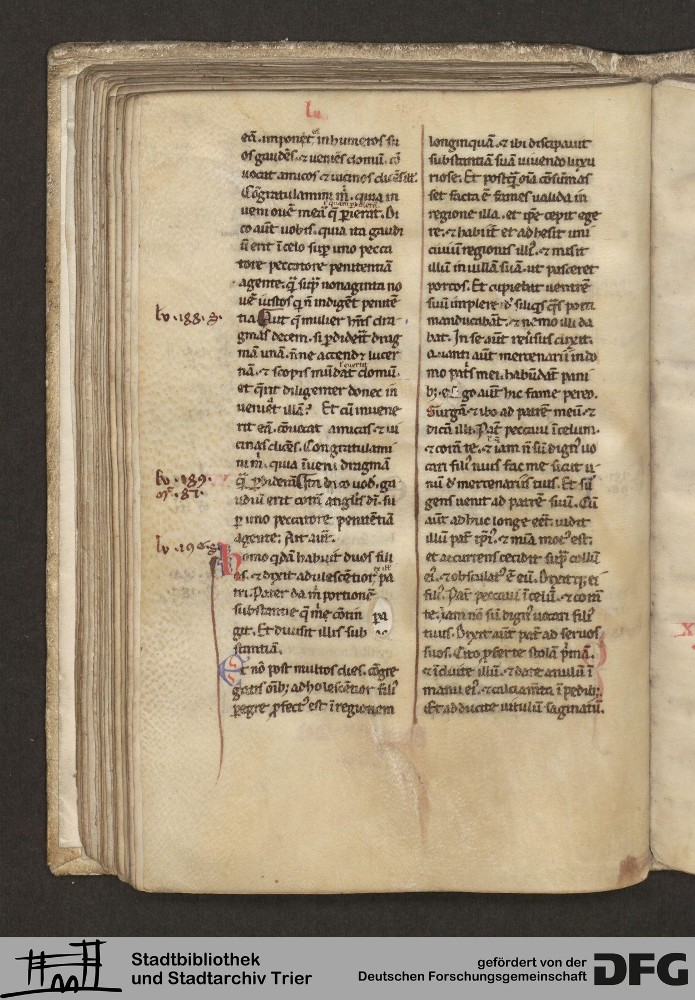 lu
eā. imponet in humeros su
os gaudēs. & veniēs domū. cō
vocat amicos & vicinos dicēs ill'.
Cōgratulamini m̄. quia in
veni ovē meā q̄ perierat. Di
co aut̄ vobis. quia ita gaudi
ū erit ī celo sup uno pecca
tore peccatore penitentiā
agente. q̄ sup nonaginta no
vē iustos q̄ n̄ indigēt penitē
lv .188. tia Aut q̄ mulier hn̄s dra
gmas decem. si pdiderit drag
mā unā. n̄ne accendit lucer
nā. & scopis mūdat domū.
et querit diligenter donec in
veniet illā? Et cū invene
rit eā. cōvocat amicas & vi
cinas dicēs. Congratulami
ni m̄. quia īveni dragmā
lv .189. q̄ pdiderā Ita dico vob. ga
udiū erit corā anglis dī. su
p uno peccatore penitētiā
agente. Ait aut̄.
homo qdā habuit duos fili
os. & dixit adulescētior pa
tri. Pater da m̄ portionē
substantie q̄ me contin
pa
git. Et divisit illis sub
stantiā.
Et nō post multos dies. cōgre
gatis oīb; adholescētior fili'
pegre pfect' est ī regionem
longinquā. & ibi dissipavit
substantiā suā vivendo luxu
riose. Et postq̄ oīa cōsūmas
set facta ē fames valida in
regione illa. et ipe cepit ege
re. & habiit et adhesit uni
civiū regionis illi'. & misit
illū in villā suā. ut pasceret
porcos. Et cupiebat ventrē
suū implere d' siliqs q̄s porci
manducabāt. & nemo illi da
bat. In se aut̄ re'sus dixit.
Quanti aut̄ mercenarii in do
mo pat's mei habūdāt pani
b;. ego aut̄ hic fame pereo.
Surgā. & ibo ad patrē meū. &
dicā illi. Pat' peccavi ī celum.
& corā te. & iam n̄ sū dign' vo
cari fili' tuus fac me sicut u
nū d' mercenariis tuis. Et sur
gens venit ad patrē suū. Cū
aut̄ adhuc longe eēt. vidit
illū pat' ipi'. & mīa mot' est.
et accurrens cecidit sup collū
ei'. & osculat' ē eū. Dixitq; ei
fili'. Pat' peccavi ī celū. & corā
te. iam nō sū dign' vocari fili'
tuus. Dixit aut̄ pat' ad servos
suos. Cito pferte stolā p'mā.
& īduite illū. & date anulū ī
manū ei'. & calciam̄ta ī pedib;.
Et adducite vitulū saginatū.
Stadtbibliothek
und Stadtarchiv Trier
gefördert von der
Deutschen Forschungsgemeinschaft
DFG